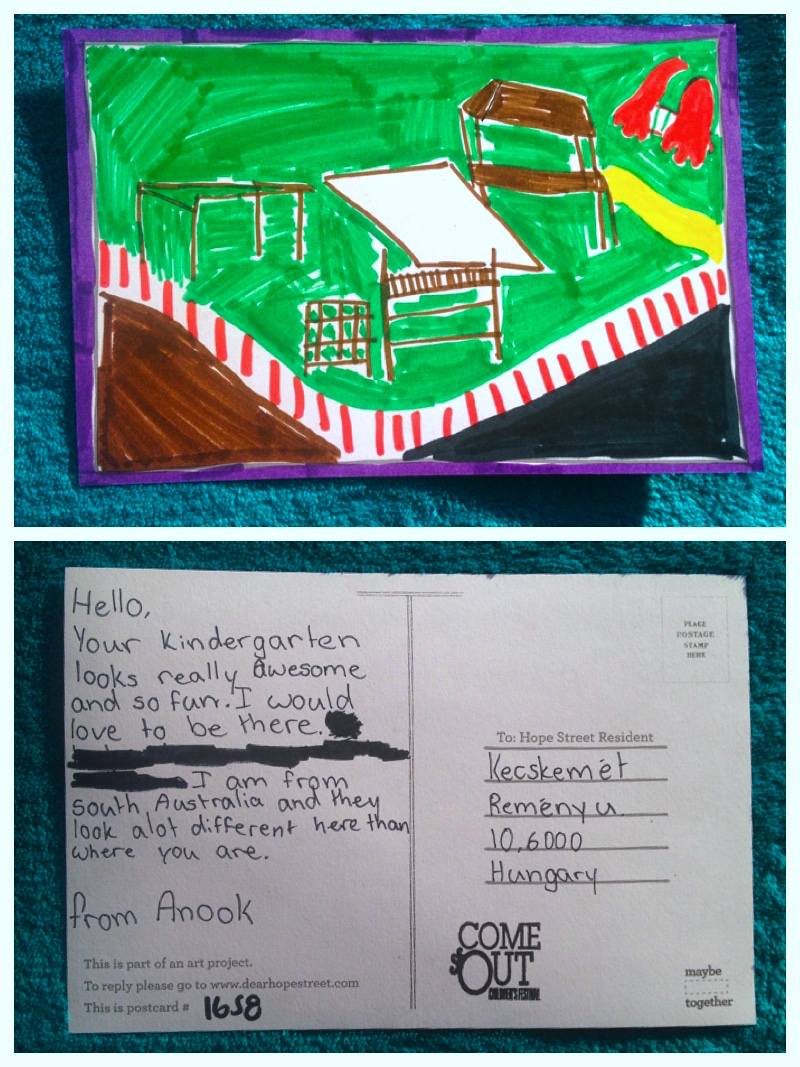 Hello,
Your kindergarten
looks really awesome
and so fun. I would
love to be there.
I am from
south Australia and they
look alot different here than
where you are.
from Anook
This is part of an art project.
To reply please go to www.dearhopestreet.com
This is postcard # 1658
PLACE
POSTAGE
STAMP
HERE
To: Hope Street Resident
Kecskemét
Remény u.
10, 6000
Hungary
COME
OUT
CHILDREN'S FESTIVAL
maybe
together